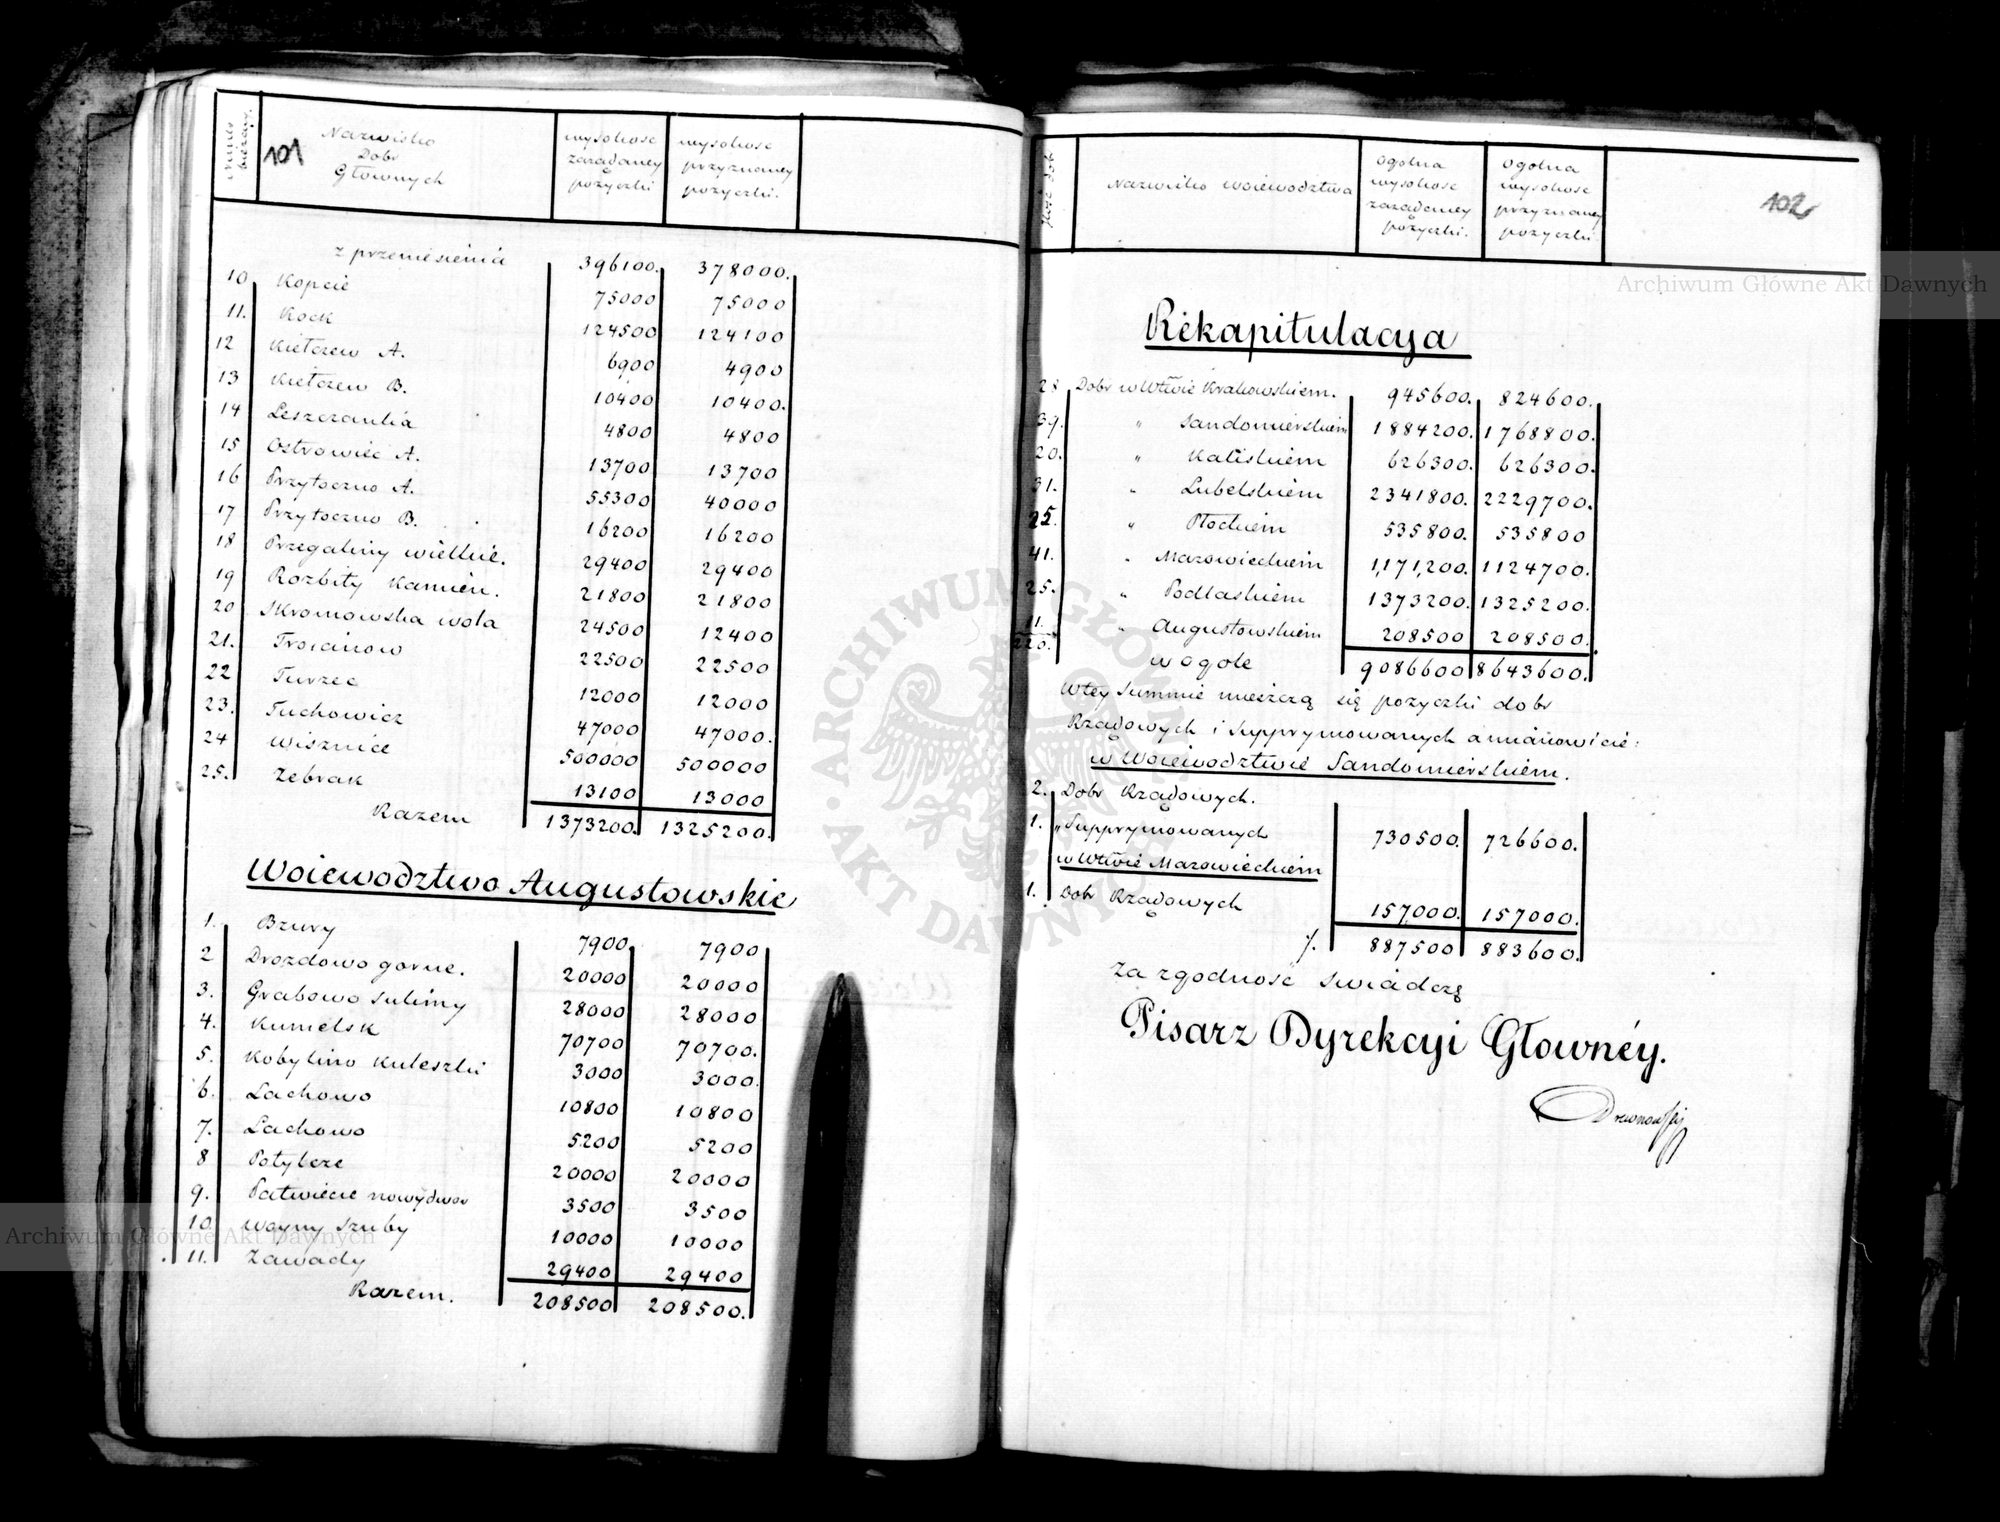 101
Numer bieżący
Nazwisko
Dobr
Głównych
wysokość
zażądaney
pożyczki
wysokość
przyznaney
pożyczki.
z przeniesienia 396100. 378000.
10 Kopcie 75000 75000
11. Kock 124500 124100
12 Kiełczew A. 6900 4900
13 Kiełczew B. 10400 10400.
14 Leszczanka 4800 4800
15 Ostrowiec A. 13700 13700
16 Przytoczno A. 55300 40000
17 Przytoczno B. 16200 16200
18 Przegaliny wielkie. 29400 29400
19 Rozbity Kamien. 21800 21800
20 Skromowska wola 24500 12400
21. Troianow 22500 22500
22 Turzec 12000 12000
23. Tuchowicz 47000 47000.
24 Wisznice 500000 500000
25. Zebrak 13100 13000
Razem 1373200. 1325200.
Woiewodztwo Augustowskie
1. Bzury 7900 7900
2 Drozdowo gorne. 20000 20000
3. Grabowo sulimy 28000 28000
4. Kumelsk 70700 70700.
5. Kobylino Kuleszki 3000 3000.
6. Lachowo 10800 10800
7. Lachowo 5200 5200
8 Potylcze 20000 20000
9. Patwiecie nowydwor 3500 3500
10 Woyny Szuby 10000 10000
11. Zawady 29400 29400
Razem. 208500 208500.
102
Ilość Dóbr
Nazwisko woiewodztwa
ogolna
wysokosc
zażądaney
pożyczki.
ogolna
wysokosc
przyznaney
pożyczki.
Rekapitulacya
28 Dobr w Wtwie Krakowskiem. 945600. 824600.
39. " Sandomierskiem 1884200. 1768800.
20. " Kaliskiem 626300. 626300.
31. " Lubelskiem 2341800. 2229700.
25. " Płockiem 535800. 535800
41. " Mazowieckiem 1,171,200. 1124700.
25. " Podlaskiem 1373200. 1325200.
11. " Augustowskiem 208500 208500.
220. w ogole 9086600 8643600.
W tey Summie mieszczą się pożyczki dobr
Rządowych i Supprymowanych a mianowicie:
w Woiewodztwie Sandomierskiem.
2. Dobr Rządowych.
1. " Supprymowanych 730500. 726600.
w Wtwie Mazowieckiem
1. Dobr Rządowych 157000. 157000.
/. 887500 883600.
Za zgodność swiadczą
Pisarz Dyrekcyi Głownéy.
Drewnowski
Archiwum Główne Akt Dawnych
Archiwum Główne Akt Dawnych
ARCHIWUM GŁÓWNE AKT DAWNYCH